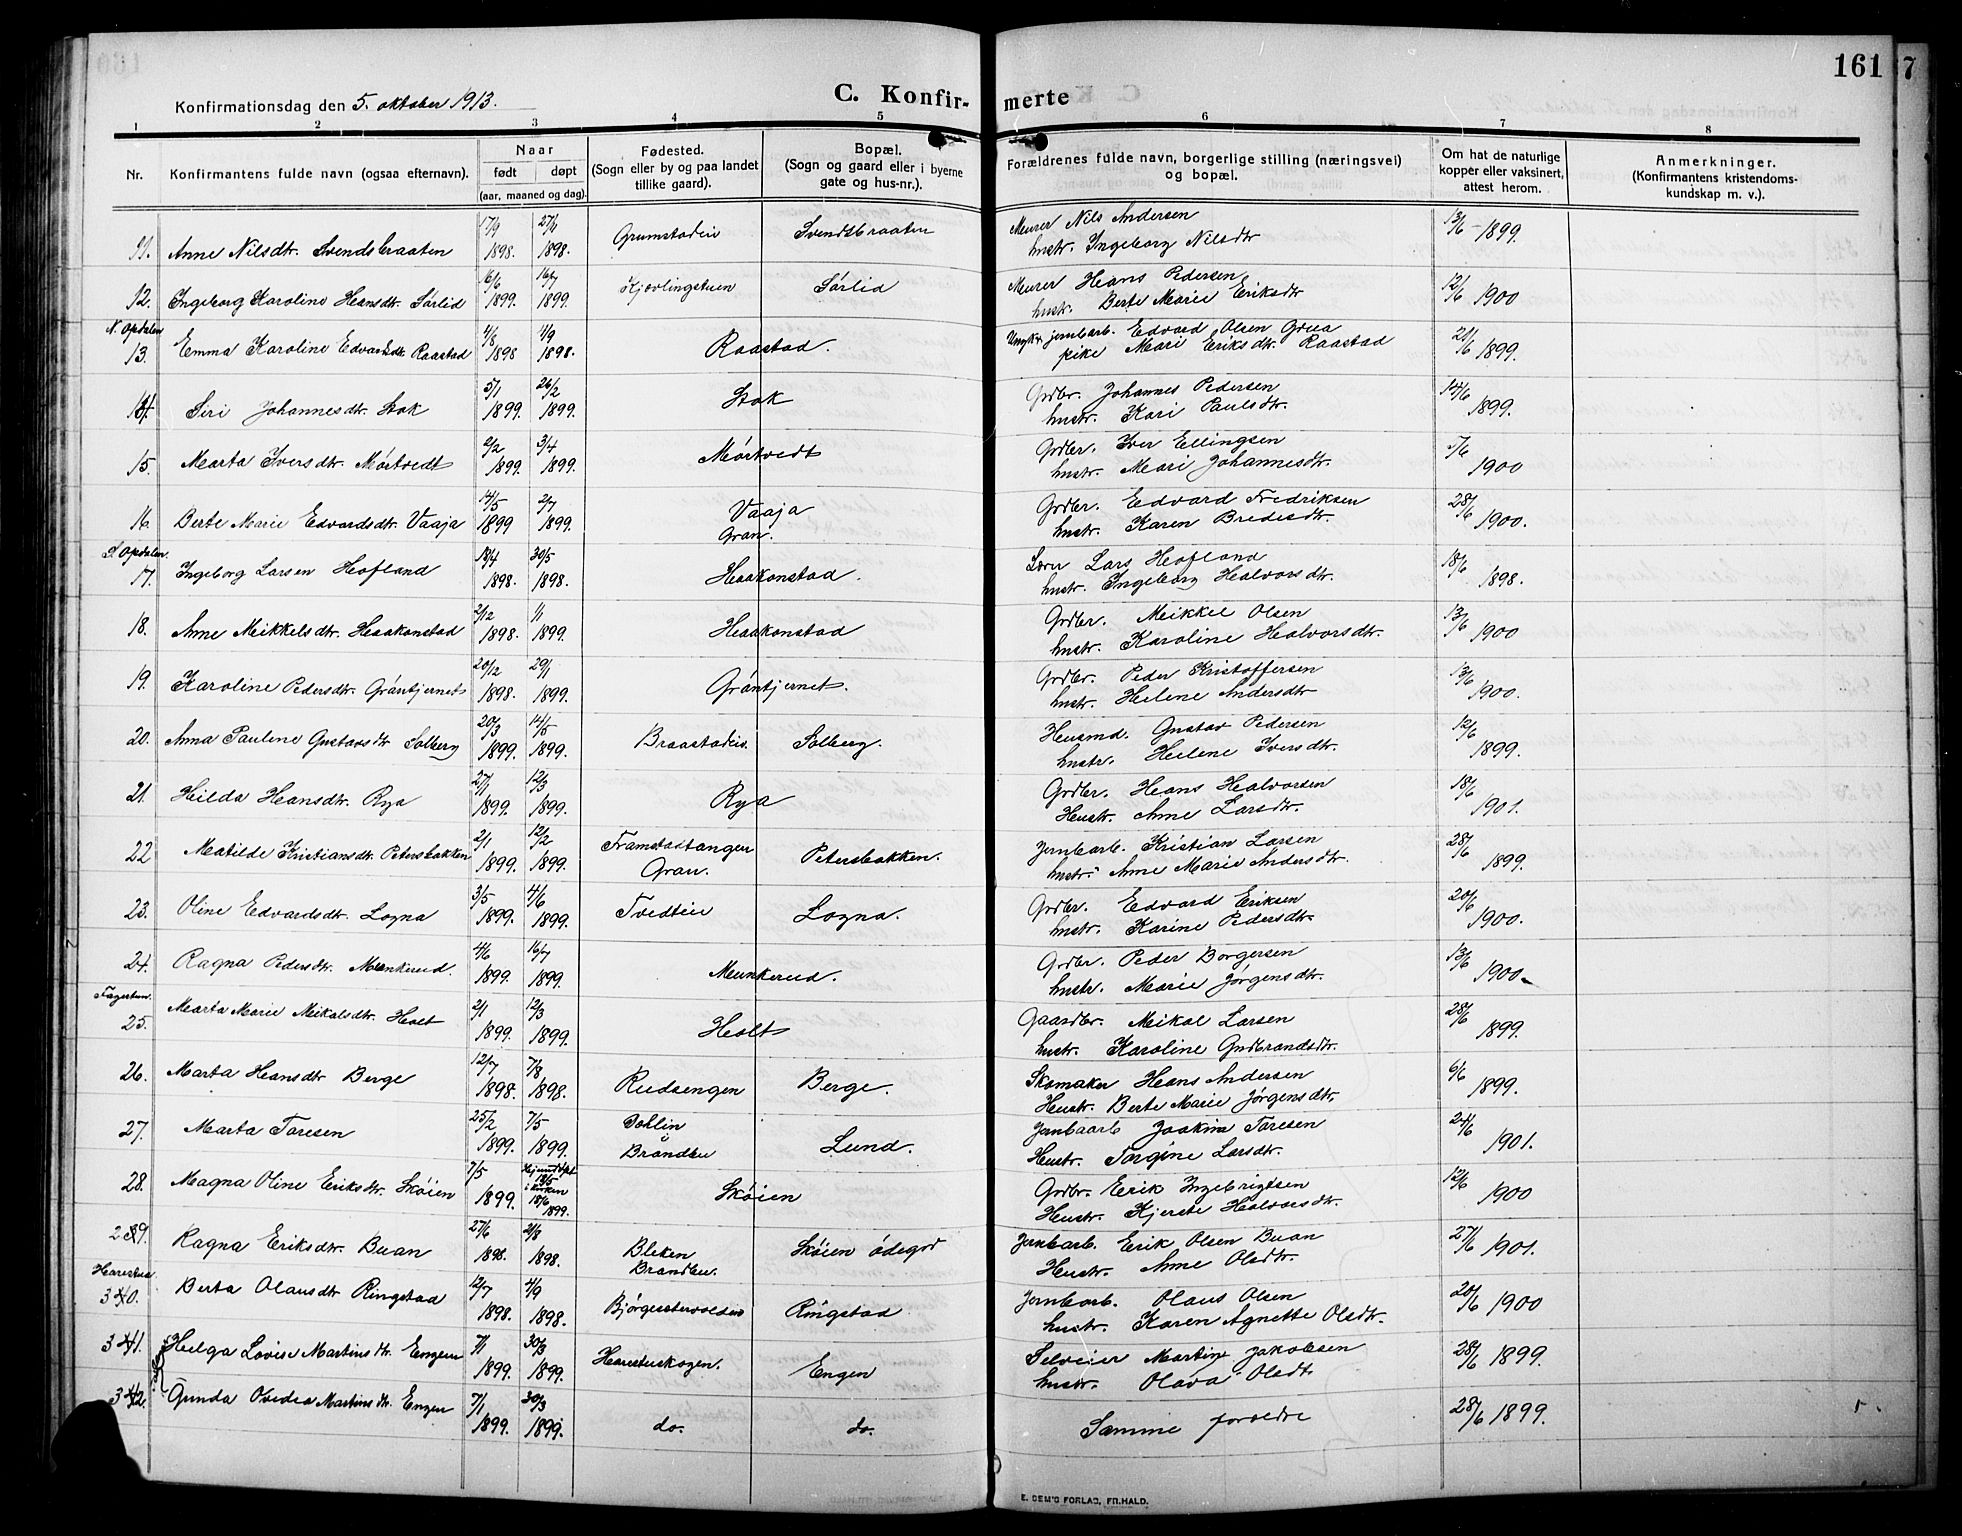 161
7
Konfirmationsdag den 5. oktober 1913.
C. Konfir-
merte
1 2 3 4 5 6 7 8
Nr.
Konfirmantens fulde navn (ogsaa efternavn).
Naar
født døpt
(aar, maaned og dag).
Fødested.
(Sogn eller by og paa landet
tillike gaard).
Bopæl.
(Sogn og gaard eller i byerne
gate og hus-nr.).
Forældrenes fulde navn, borgerlige stilling (næringsvei)
og bopæl.
Om hat de naturlige
kopper eller vaksinert,
attest herom.
Anmerkninger.
(Konfirmantens kristendoms-
kundskap m. v.).
11. Anne Nilsdtr. Svendsbraaten 17/9 1898. 1898. Grumstadeie Svendsbraaten Murer Nils Andersen
hustr. Ingeborg Nilsdtr 13/6 - 1899.
12. Ingeborg Karoline Hansdtr. Sørlid 6/6 1899. 16/7 1899. Kjævlingstuen Sørlid Murer Hans Pedersen
hustr. Berte Marie Eriksdtr 12/6 1900
N. Opdalen
13. Emma Karoline Edvardsdtr. Raastad 4/8 1898 4/9 1898. Raastad. Ungk. jernbarb. Edvard Olsen Grua
pike Mari Eriksdtr. Raastad 21/6 1899.
14. Siri Johannesdtr. Stok 5/1 1899. 26/2 1899. Stok Grdbr. Johannes Pedersen
hustr. Kari Paulsdtr. 14/6 1899.
15. Marta Iversdtr. Mørtvedt 2/2 1899. 3/4 1899. Mørtvedt Grdbr. Iver Ellingsen
hustr. Mari Johannesdtr. 1900
16. Berte Marie Edvardsdtr. Vaaja 14/5 1899 2/7 1899. Vaaja
Gran. Grdbr. Edvard Fredriksen
hustr. Karen Bredesdtr. 28/6 1900.
S. Opdalen.
17. Ingeborg Larsen Hofland 19/4 1898. 30/5 1898. Haakonstad. Lærer Lars Hofland
hustr. Ingeborg Halvorsdtr. 18/6 1898.
18. Anne Mikkelsdtr. Haakonstad 2/12 1898. 1/1 1899. Haakonstad Grdbr. Mikkel Olsen
hustr. Karoline Halvorsdtr. 13/6 1900
19. Karoline Pedersdtr. Grøntjernet 20/12 1898. 29/1 1899. Grøntjernet. Grdbr. Peder Kristoffersen
hustr. Helene Andersdtr 13/6 1900.
20. Anna Pauline Gustavsdtr Solberg 20/3 1899. 14/5 1899. Braastadeie. Solberg. Husmd. Gustav Pedersen
hustr. Helene Iversdtr. 12/6 1899.
21. Hilda Hansdtr. Rya 27/1 1899. 12/3 1899. Rya Grdbr. Hans Halvorsen
Hustr. Anne Larsdtr. 18/6 1901.
22 Matilde Kristiansdtr. Petersbakken 2/1 1899. 12/2 1899. Framstadtangen
Gran. Petersbakken. Jernbarb. Kristian Larsen
hustr. Anne Marie Andersdtr. 28/6 1899.
23. Oline Edvardsdtr. Logna 3/5 1899. 4/6 1899. Tvedteie Logna. Grdbr. Edvard Eriksen
hustr. Karine Pedersdtr. 20/6 1900.
24. Ragna Pedersdtr. Munkerud. 4/6 1899. 16/7 1899. Munkerud. Grdbr. Peder Borgersen
hustr. Marie Jørgensdtr. 13/6 1900.
Fagertun.
25. Marta Marie Mikalsdtr. Holt 2/1 1899. 12/3 1899. Holt Gaardbr. Mikal Larsen
hustr. Karoline Gudbrandsdtr. 28/6 1899.
26. Marta Hansdtr Berge 12/7 1898. 7/8 1898. Rudsengen Berge. Skomaker Hans Andersen
Hustr. Berte Marie Jørgensdtr, 6/6 1899.
27. Marta Toresen 25/2 1899. 7/5 1899. Dohlin
Brandbu Lund. Jernbaarb Joakim Toresen
Hustr. Torgine Larsdtr. 24/6 1901.
28. Magna Oline Eriksdtr. Skøien 7/5 1899. Hjemmedøpt
18/5
i kirken
18/6
1899. Skøien Grdbr. Erik Ingebrigtsen
Hustr. Kjerste Halvorsdtr. 12/6 1900
29. Ragna Eriksdtr. Buan 27/6 1898. 21/8 1898. Bleken
Brandbu. Skøien ødegrd Jernbarb. Erik Olsen Buan
Hustr. Anne Olsdtr. 27/6 1901.
Harestua
30. Berta Olausdtr Ringstad 12/7 1898. 4/9 1898. Bjørgeseterødden Ringstad Jernbarb. Olaus Olsen
hustr. Karen Agnette Olsdtr. 20/6 1900
31. Helga Lovise Martinsdtr. Engen 7/1 1899. 30/3 1899. Harestuskogen. Engen Selveier Martin Jakobsen
hustr. Olava Olsdt. 28/6 1899.
32. Gunda Ovidia Martinsdtr. Engen 7/1 1899. 30/3 1899. do. do. Samme forældre 28/6 1899.
E. SEM'S FORLAG, FR.HALD.